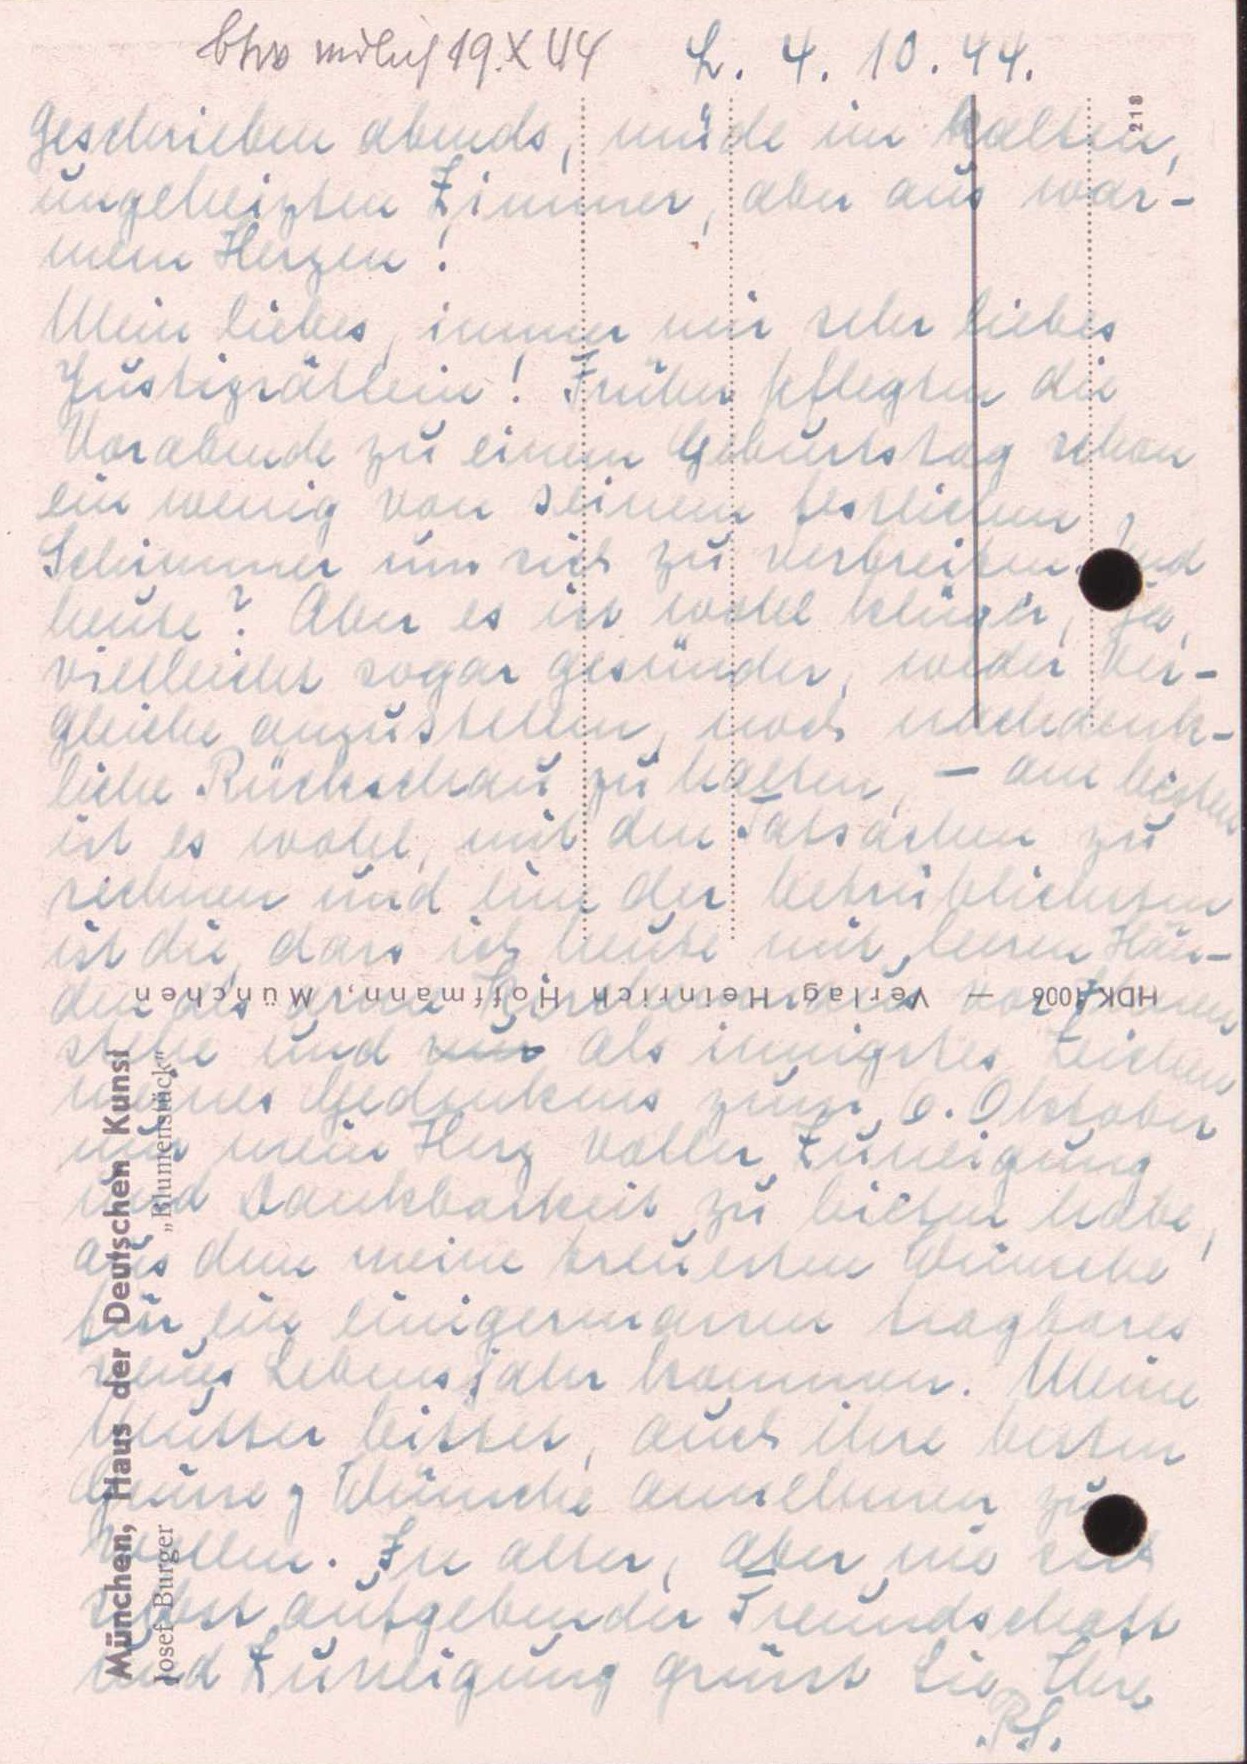 19.X 44 L. 4. 10. 44.
218
Geschrieben abends, müde im kalten,
ungeheizten Zimmer, aber aus war-
mem Herzen!
Mein liebes, immer mir sehr liebes
Justizrätlein! Früher pflegten die
Vorabende zu einem Geburtstag schon
ein wenig von seinem festlichen
Schimmer um sich zu verbreiten. Und
heute? Aber es ist wohl klüger, ja,
vielleicht sogar gesünder, weder Ver-
gleiche anzustellen, noch nachdenk-
liche Rückschau zu halten, – am besten
ist es wohl, mit den Tatsachen zu
rechnen und eine der betrüblichsten
ist die, dass ich heute mit leeren Hän-
den als arme vor Ihnen
stehe und nur als innigstes Zeichen
meines Gedenkens zum 6. Oktober
nur mein Herz voller Zuneigung
und Dankbarkeit zu bieten habe,
aus dem meine treuesten Wünsche
für ein einigermassen tragbares
neues Lebensjahr kommen. Meine
Mutter bittet, auch ihre besten
Grüsse & Wünsche annehmen zu
wollen. In alter, aber nie sich
selbst aufgebender Freundschaft
und Zuneigung grüsst Sie Ihre
P.S.
HDK 1006 — Verlag Heinrich Hoffmann, München
München, Haus der Deutschen Kunst
Josef Burger „Blumenstück"